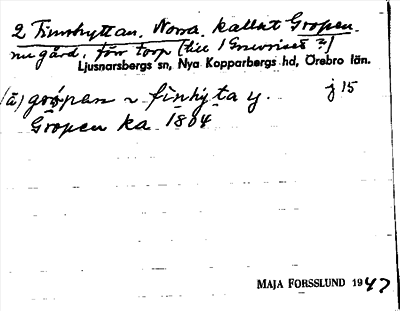 2 Finnhyttan, Norra, kallat Gropen.
nu gård, förr torp (till 1 Grusriset ?)
Ljusnarsbergs sn, Nya Kopparbergs hd, Örebro län.
(ä) gròpan ~ finhyta y. j 15
Gropen ka 1804
MAJA FORSSLUND 1947